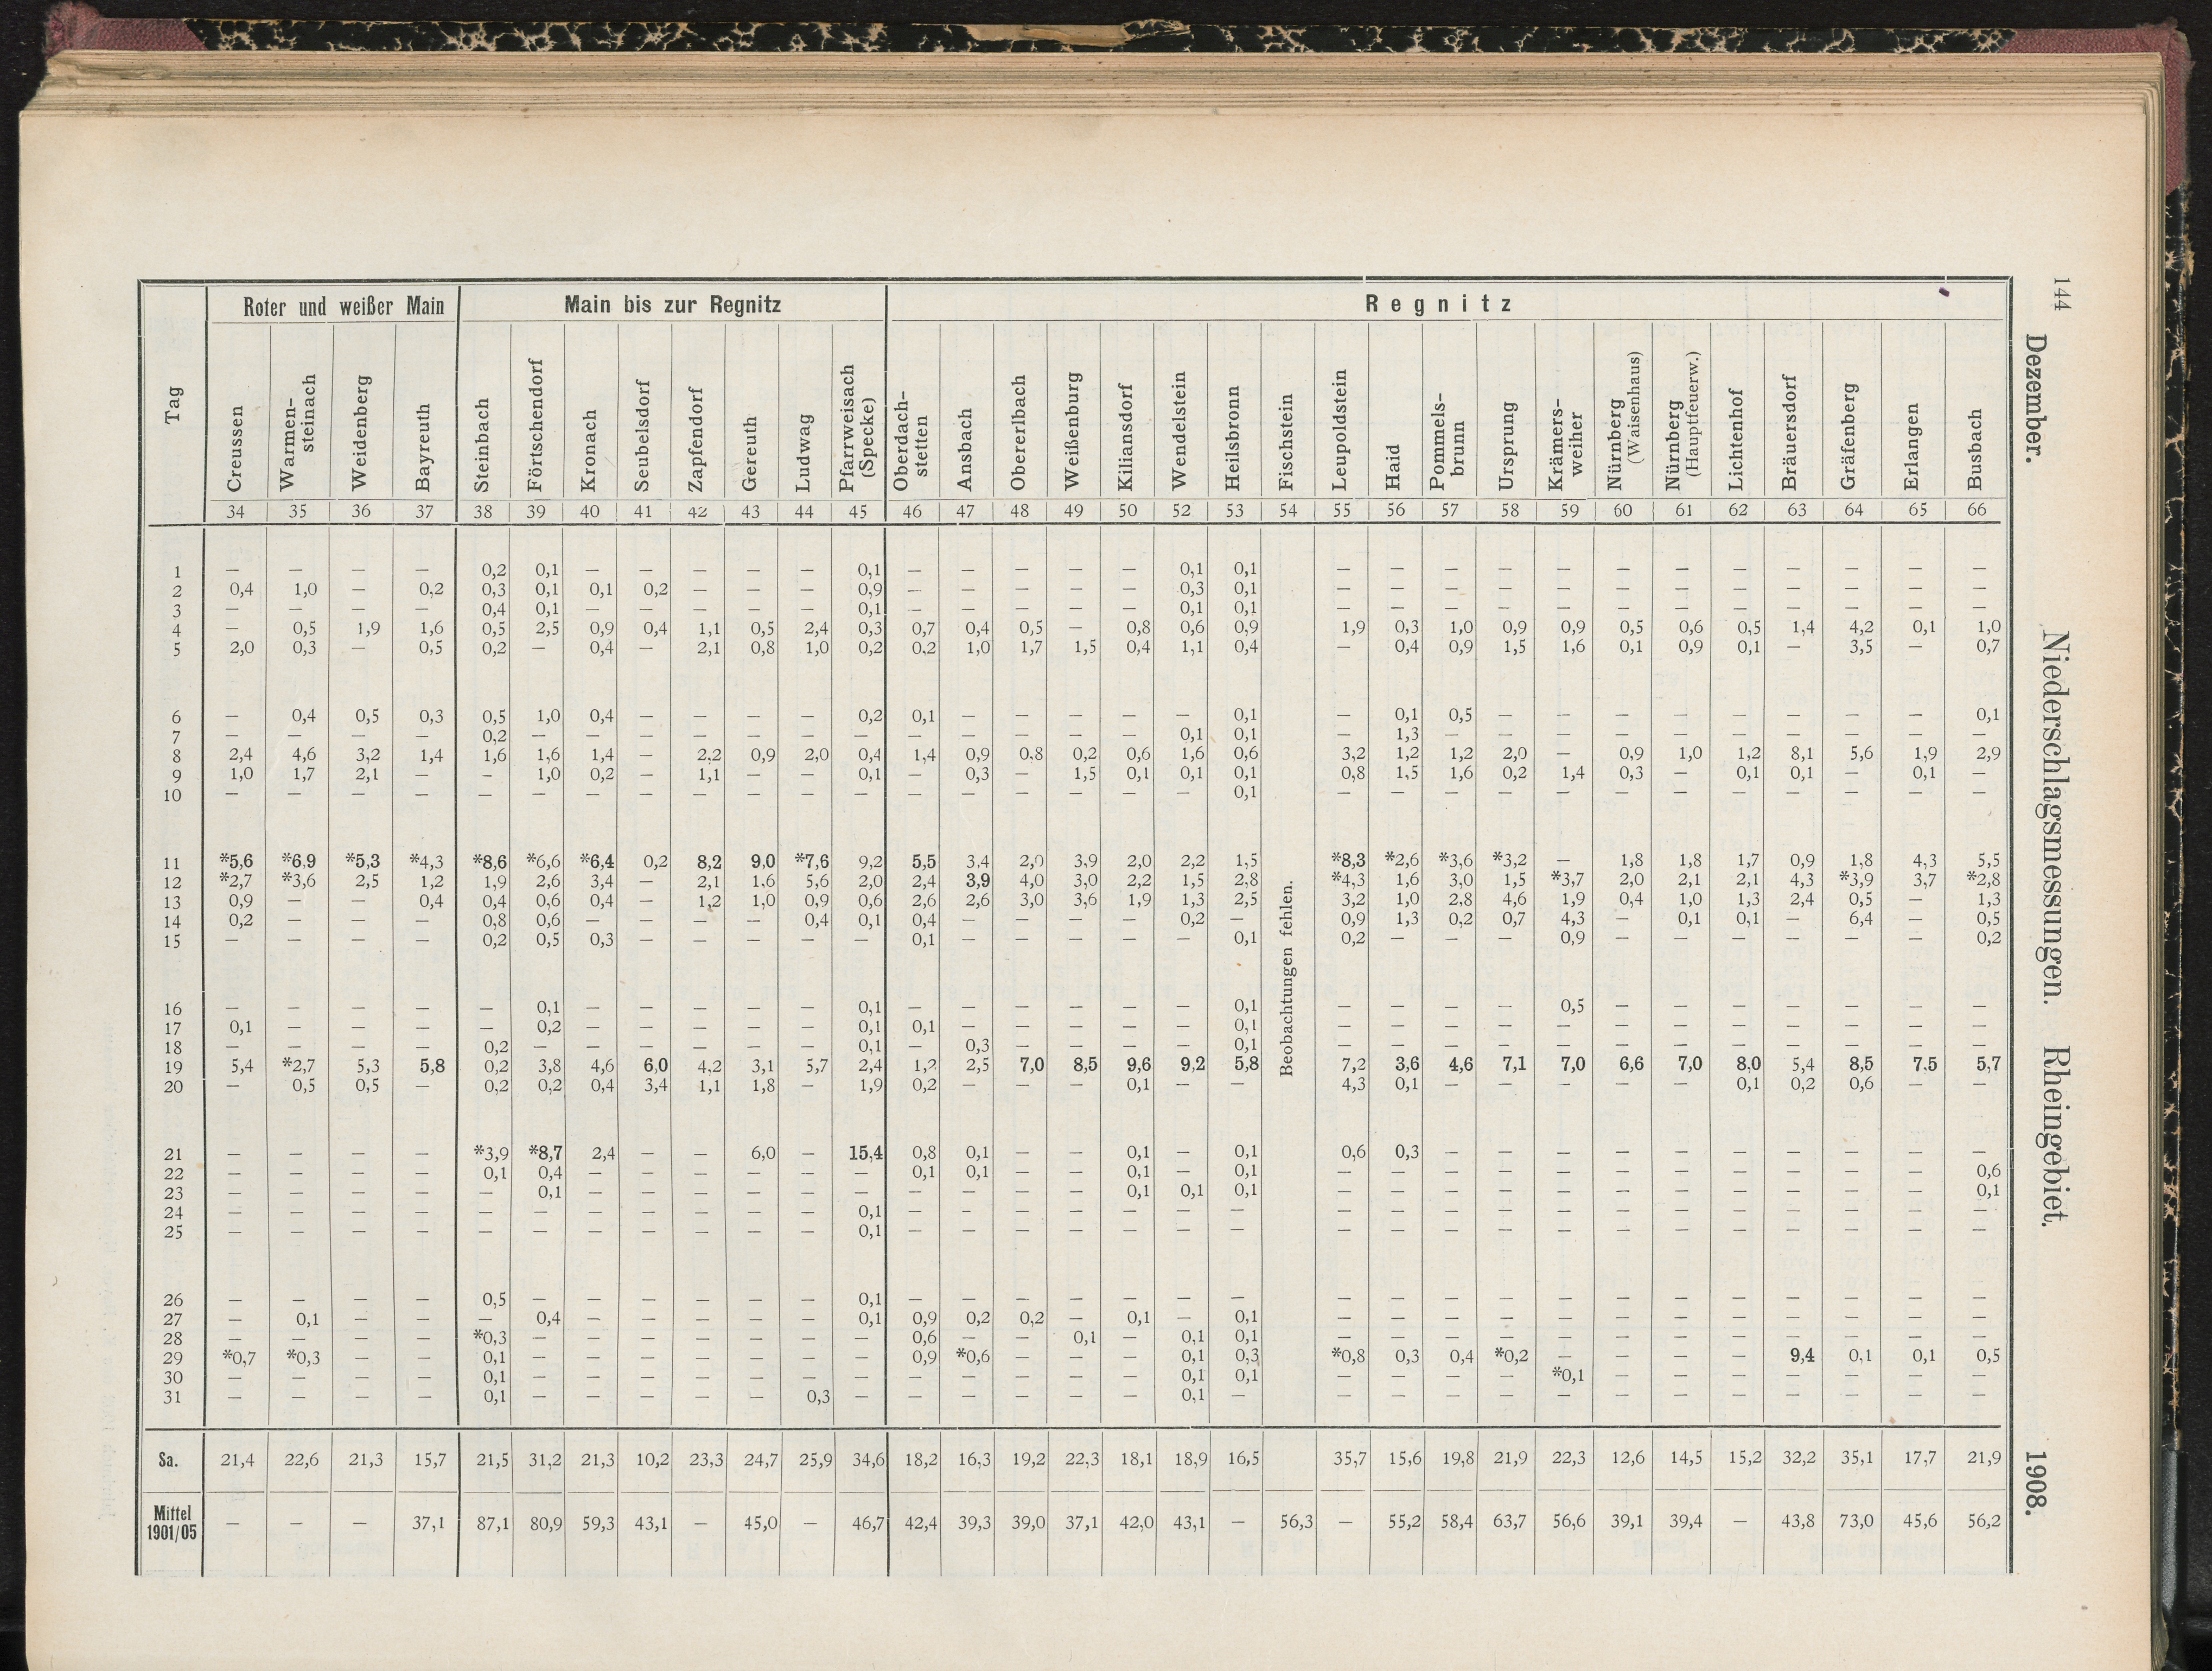 144 Dezember. Niederschlagsmessungen. Rheingebiet. 1908.
Tag | Roter und weißer Main | Main bis zur Regnitz | Regnitz
Creussen | Warmen-steinach | Weidenberg | Bayreuth | Steinbach | Förtschendorf | Kronach | Seubelsdorf | Zapfendorf | Gereuth | Ludwag | Pfarrweisach (Specke) | Oberdach-stetten | Ansbach | Obererlbach | Weißenburg | Kiliansdorf | Wendelstein | Heilsbronn | Fischstein | Leupoldstein | Haid | Pommels-brunn | Ursprung | Krämers-weiher | Nürnberg (Waisenhaus) | Nürnberg (Hauptfeuerw.) | Lichtenhof | Bräuersdorf | Gräfenberg | Erlangen | Busbach
34 35 36 37 38 39 40 41 42 43 44 45 46 47 48 49 50 52 53 54 55 56 57 58 59 60 61 62 63 64 65 66
1 — — — — 0,2 0,1 — — — — — 0,1 — — — — — 0,1 0,1 — — — — — — — — — — — —
2 0,4 1,0 — 0,2 0,3 0,1 0,1 0,2 — — — 0,9 — — — — — 0,3 0,1 — — — — — — — — — — — —
3 — — — — 0,4 0,1 — — — — — 0,1 — — — — — 0,1 0,1 — — — — — — — — — — — —
4 — 0,5 1,9 1,6 0,5 2,5 0,9 0,4 1,1 0,5 2,4 0,3 0,7 0,4 0,5 — 0,8 0,6 0,9 1,9 0,3 1,0 0,9 0,9 0,5 0,6 0,5 1,4 4,2 0,1 1,0
5 2,0 0,3 — 0,5 0,2 — 0,4 — 2,1 0,8 1,0 0,2 0,2 1,0 1,7 1,5 0,4 1,1 0,4 — 0,4 0,9 1,5 1,6 0,1 0,9 0,1 — 3,5 — 0,7
6 — 0,4 0,5 0,3 0,5 1,0 0,4 — — — — 0,2 0,1 — — — — — 0,1 — 0,1 0,5 — — — — — — — — 0,1
7 — — — — 0,2 — — — — — — — — — — — — 0,1 0,1 — 1,3 — — — — — — — — — —
8 2,4 4,6 3,2 1,4 1,6 1,6 1,4 — 2,2 0,9 2,0 0,4 1,4 0,9 0,8 0,2 0,6 1,6 0,6 3,2 1,2 1,2 2,0 — 0,9 1,0 1,2 8,1 5,6 1,9 2,9
9 1,0 1,7 2,1 — — 1,0 0,2 — 1,1 — — 0,1 — 0,3 — 1,5 0,1 0,1 0,1 0,8 1,5 1,6 0,2 1,4 0,3 — 0,1 0,1 — 0,1 —
10 — — — — — — — — — — — — — — — — — — 0,1 — — — — — — — — — — — —
11 *5,6 *6,9 *5,3 *4,3 *8,6 *6,6 *6,4 0,2 8,2 9,0 *7,6 9,2 5,5 3,4 2,0 3,9 2,0 2,2 1,5 *8,3 *2,6 *3,6 *3,2 — 1,8 1,8 1,7 0,9 1,8 4,3 5,5
12 *2,7 *3,6 2,5 1,2 1,9 2,6 3,4 — 2,1 1,6 5,6 2,0 2,4 3,9 4,0 3,0 2,2 1,5 2,8 *4,3 1,6 3,0 1,5 *3,7 2,0 2,1 2,1 4,3 *3,9 3,7 *2,8
13 0,9 — — 0,4 0,4 0,6 0,4 — 1,2 1,0 0,9 0,6 2,6 2,6 3,0 3,6 1,9 1,3 2,5 3,2 1,0 2,8 4,6 1,9 0,4 1,0 1,3 2,4 0,5 — 1,3
14 0,2 — — — 0,8 0,6 — — — — 0,4 0,1 0,4 — — — — 0,2 — 0,9 1,3 0,2 0,7 4,3 — 0,1 0,1 — 6,4 — 0,5
15 — — — — 0,2 0,5 0,3 — — — — — 0,1 — — — — — 0,1 0,2 — — — 0,9 — — — — — — 0,2
Beobachtungen fehlen.
16 — — — — — 0,1 — — — — — 0,1 — — — — — — 0,1 — — — — 0,5 — — — — — — —
17 0,1 — — — — 0,2 — — — — — 0,1 0,1 — — — — — 0,1 — — — — — — — — — — — —
18 — — — — 0,2 — — — — — — 0,1 — 0,3 — — — — 0,1 — — — — — — — — — — — —
19 5,4 *2,7 5,3 5,8 0,2 3,8 4,6 6,0 4,2 3,1 5,7 2,4 1,2 2,5 7,0 8,5 9,6 9,2 5,8 7,2 3,6 4,6 7,1 7,0 6,6 7,0 8,0 5,4 8,5 7,5 5,7
20 — 0,5 0,5 — 0,2 0,2 0,4 3,4 1,1 1,8 — 1,9 0,2 — — — 0,1 — — 4,3 0,1 — — — — — 0,1 0,2 0,6 — —
21 — — — — *3,9 *8,7 2,4 — — 6,0 — 15,4 0,8 0,1 — — 0,1 — 0,1 0,6 0,3 — — — — — — — — — —
22 — — — — 0,1 0,4 — — — — — — 0,1 0,1 — — 0,1 — 0,1 — — — — — — — — — — — 0,6
23 — — — — — 0,1 — — — — — — — — — — 0,1 0,1 0,1 — — — — — — — — — — — 0,1
24 — — — — — — — — — — — 0,1 — — — — — — — — — — — — — — — — — — —
25 — — — — — — — — — — — 0,1 — — — — — — — — — — — — — — — — — — —
26 — — — — 0,5 — — — — — — 0,1 — — — — — — — — — — — — — — — — — — —
27 — 0,1 — — — 0,4 — — — — — 0,1 0,9 0,2 0,2 — 0,1 — 0,1 — — — — — — — — — — — —
28 — — — — *0,3 — — — — — — — 0,6 — — 0,1 — 0,1 0,1 — — — — — — — — — — — —
29 *0,7 *0,3 — — 0,1 — — — — — — — 0,9 *0,6 — — — 0,1 0,3 *0,8 0,3 0,4 *0,2 — — — — 9,4 0,1 0,1 0,5
30 — — — — 0,1 — — — — — — — — — — — — 0,1 0,1 — — — — *0,1 — — — — — — —
31 — — — — 0,1 — — — — — 0,3 — — — — — — 0,1 — — — — — — — — — — — — —
Sa. 21,4 22,6 21,3 15,7 21,5 31,2 21,3 10,2 23,3 24,7 25,9 34,6 18,2 16,3 19,2 22,3 18,1 18,9 16,5 35,7 15,6 19,8 21,9 22,3 12,6 14,5 15,2 32,2 35,1 17,7 21,9
Mittel 1901/05 — — — 37,1 87,1 80,9 59,3 43,1 — 45,0 — 46,7 42,4 39,3 39,0 37,1 42,0 43,1 — 56,3 — 55,2 58,4 63,7 56,6 39,1 39,4 — 43,8 73,0 45,6 56,2